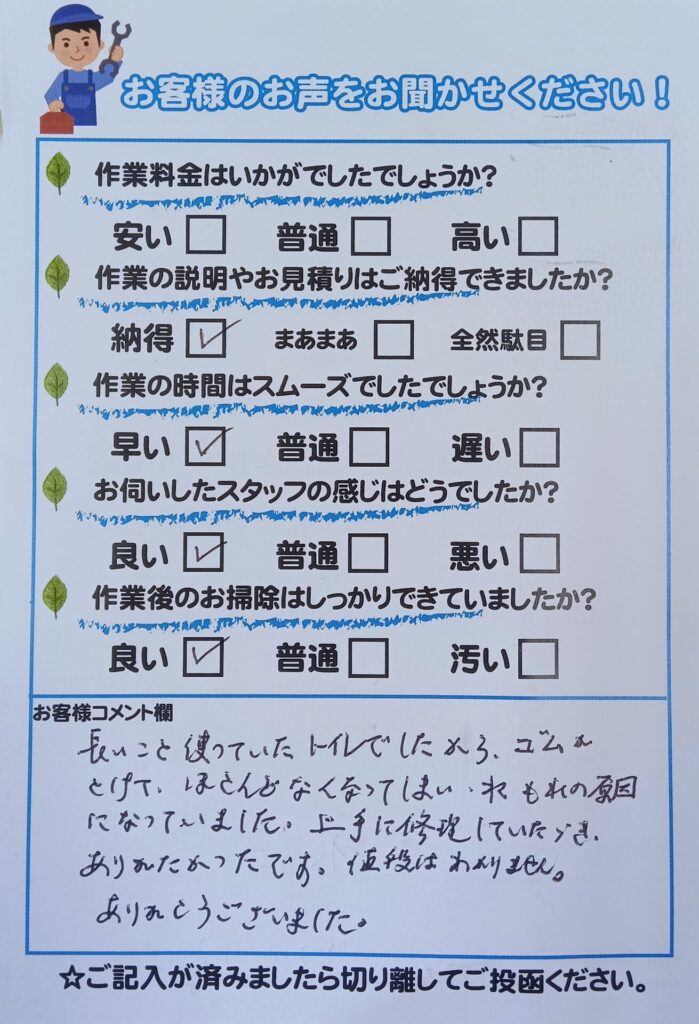 お客様のお声をお聞かせください！
作業料金はいかがでしたでしょうか?
安い □ 普通 □ 高い □
作業の説明やお見積りはご納得できましたか?
納得 ☑ まあまあ □ 全然駄目 □
作業の時間はスムーズでしたでしょうか?
早い ☑ 普通 □ 遅い □
お伺いしたスタッフの感じはどうでしたか?
良い ☑ 普通 □ 悪い □
作業後のお掃除はしっかりできていましたか?
良い ☑ 普通 □ 汚い □
お客様コメント欄
長いこと使っていたトイレでしたから、ゴムが
とけて、ほとんどなくなってしまい、水もれの原因
になっていました。上手に修理していただき、
ありがたかったです。値段はわかりません。
ありがとうございました。
☆ご記入が済みましたら切り離してご投函ください。